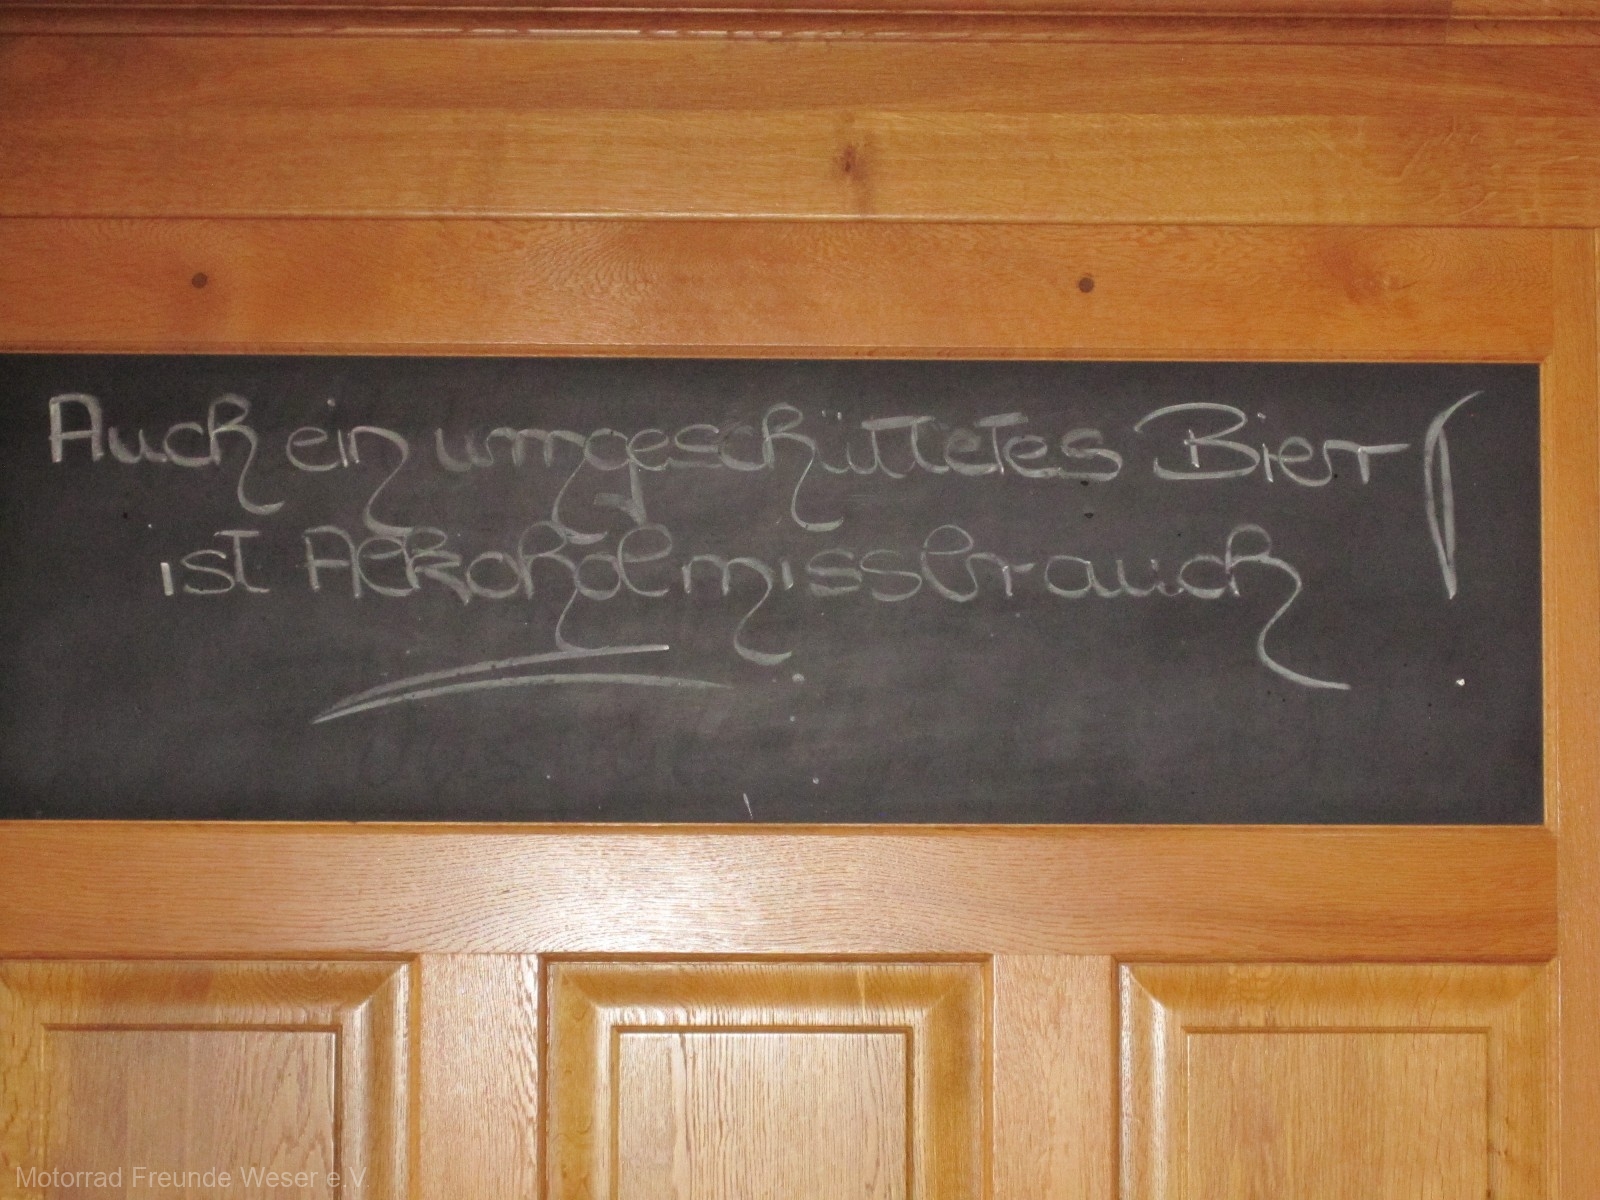 Auch ein umgeschüttetes Bier
ist Alkoholmissbrauch !
Motorrad Freunde Weser e.V.